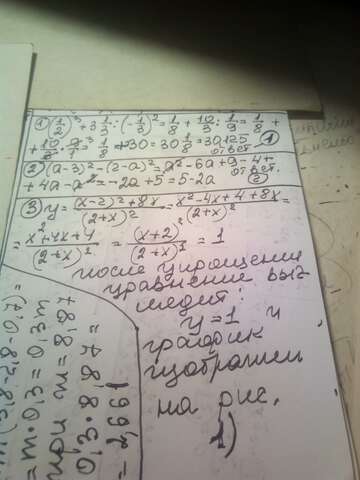 ① (1/2)³ + 3 1/3 : (-1/3)² = 1/8 + 10/3 : 1/9 = 1/8 +
+ 10/3 · 9/1 = 1/8 + 30 = 30 1/8 = 30,125
ответ. ①
② (a-3)² - (2-a)² = a² - 6a + 9 - 4 +
+ 4a - a² = -2a + 5 = 5 - 2a
ответ. ②
③ y = (x-2)² + 8x / (2+x)² = x² - 4x + 4 + 8x / (2+x)² =
= x² + 4x + 4 / (2+x)² = (x+2)² / (2+x)² = 1
после упрощения
уравнение выг
лядит:
y = 1 и
график
изображен
на рис.
1)
= m · 0,3 = 0,3m
при m = 8,87
0,3 · 8,87 =
= 2,661